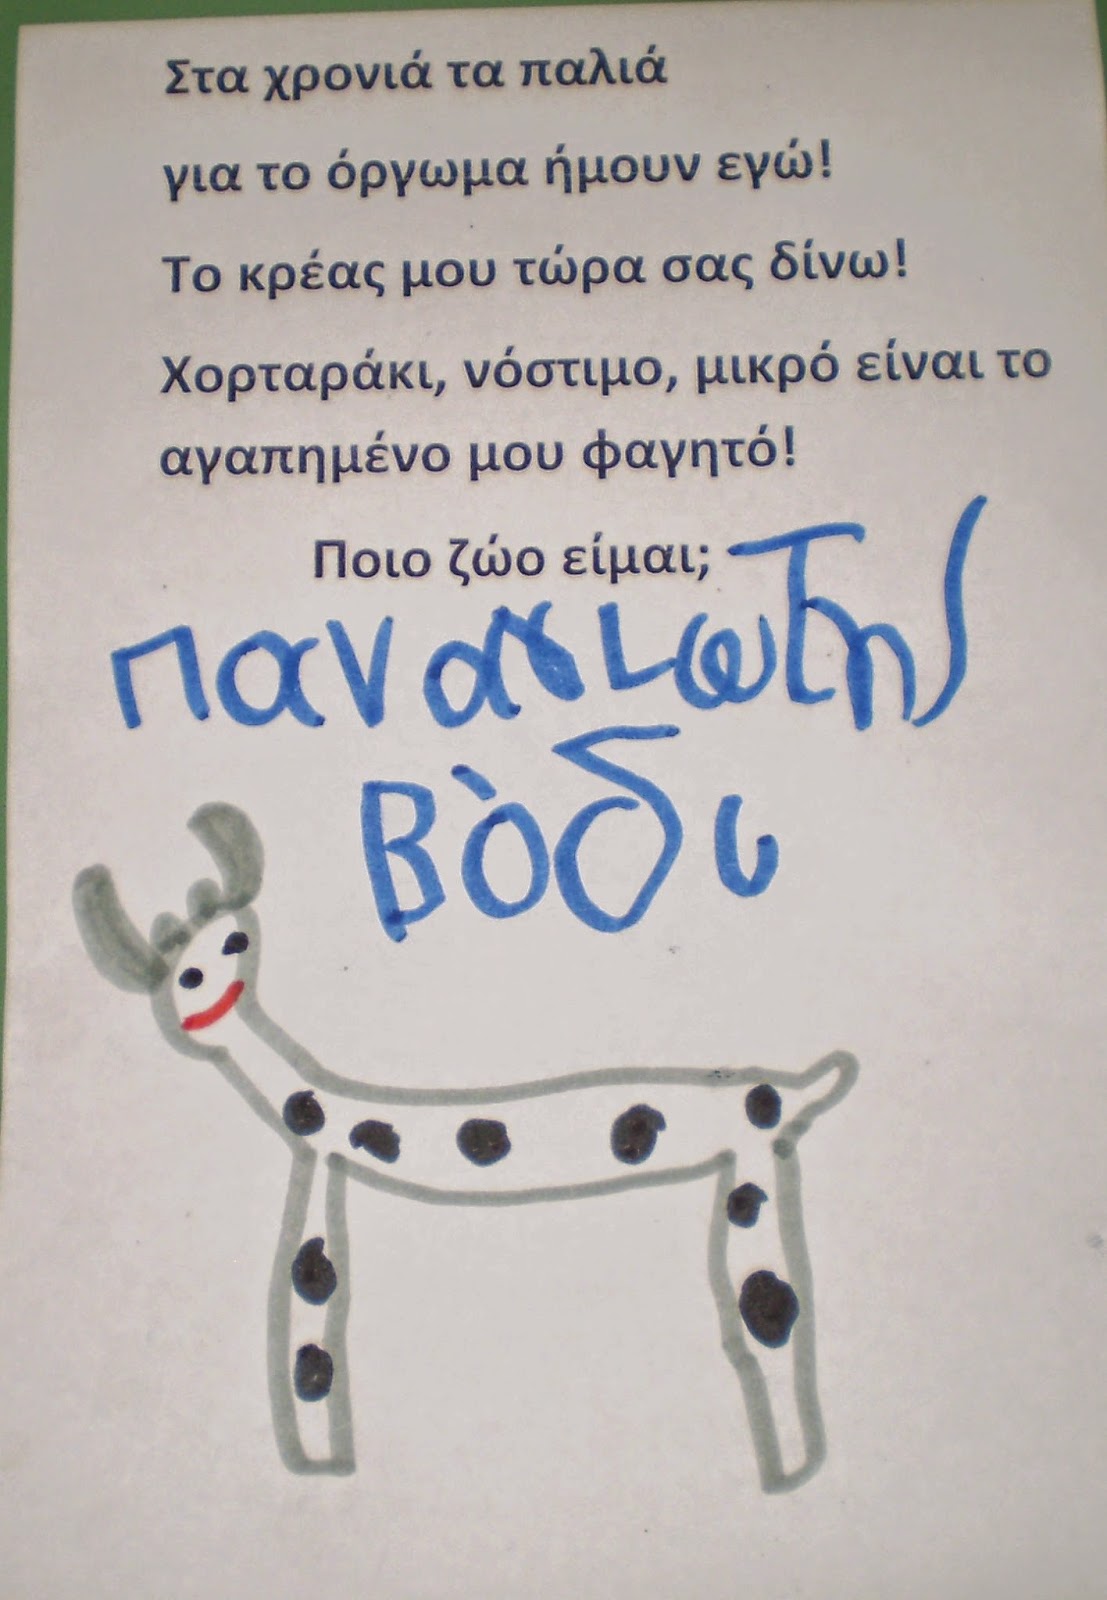 Στα χρονιά τα παλιά
για το όργωμα ήμουν εγώ!
Το κρέας μου τώρα σας δίνω!
Χορταράκι, νόστιμο, μικρό είναι το
αγαπημένο μου φαγητό!
Ποιο ζώο είμαι;
παναγιωτης
Βὸδι